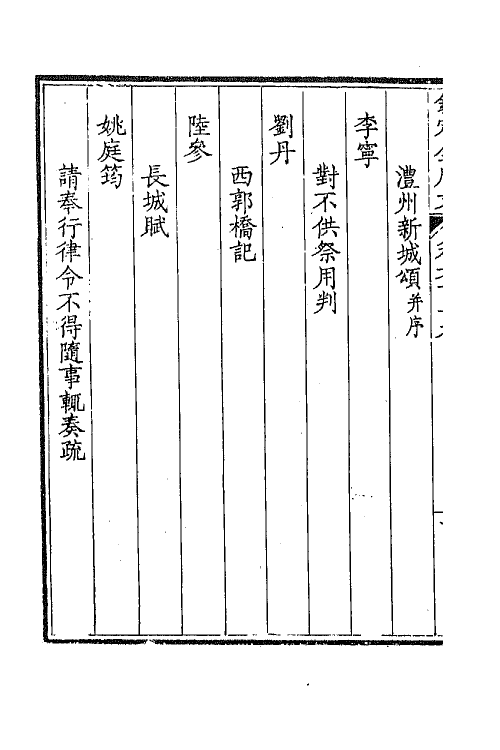 澧州新城頌并序
李寧
對不供祭用判
劉丹
西郭橋記
陸參
長城賦
姚庭筠
請奉行律令不得隨事輒奏疏